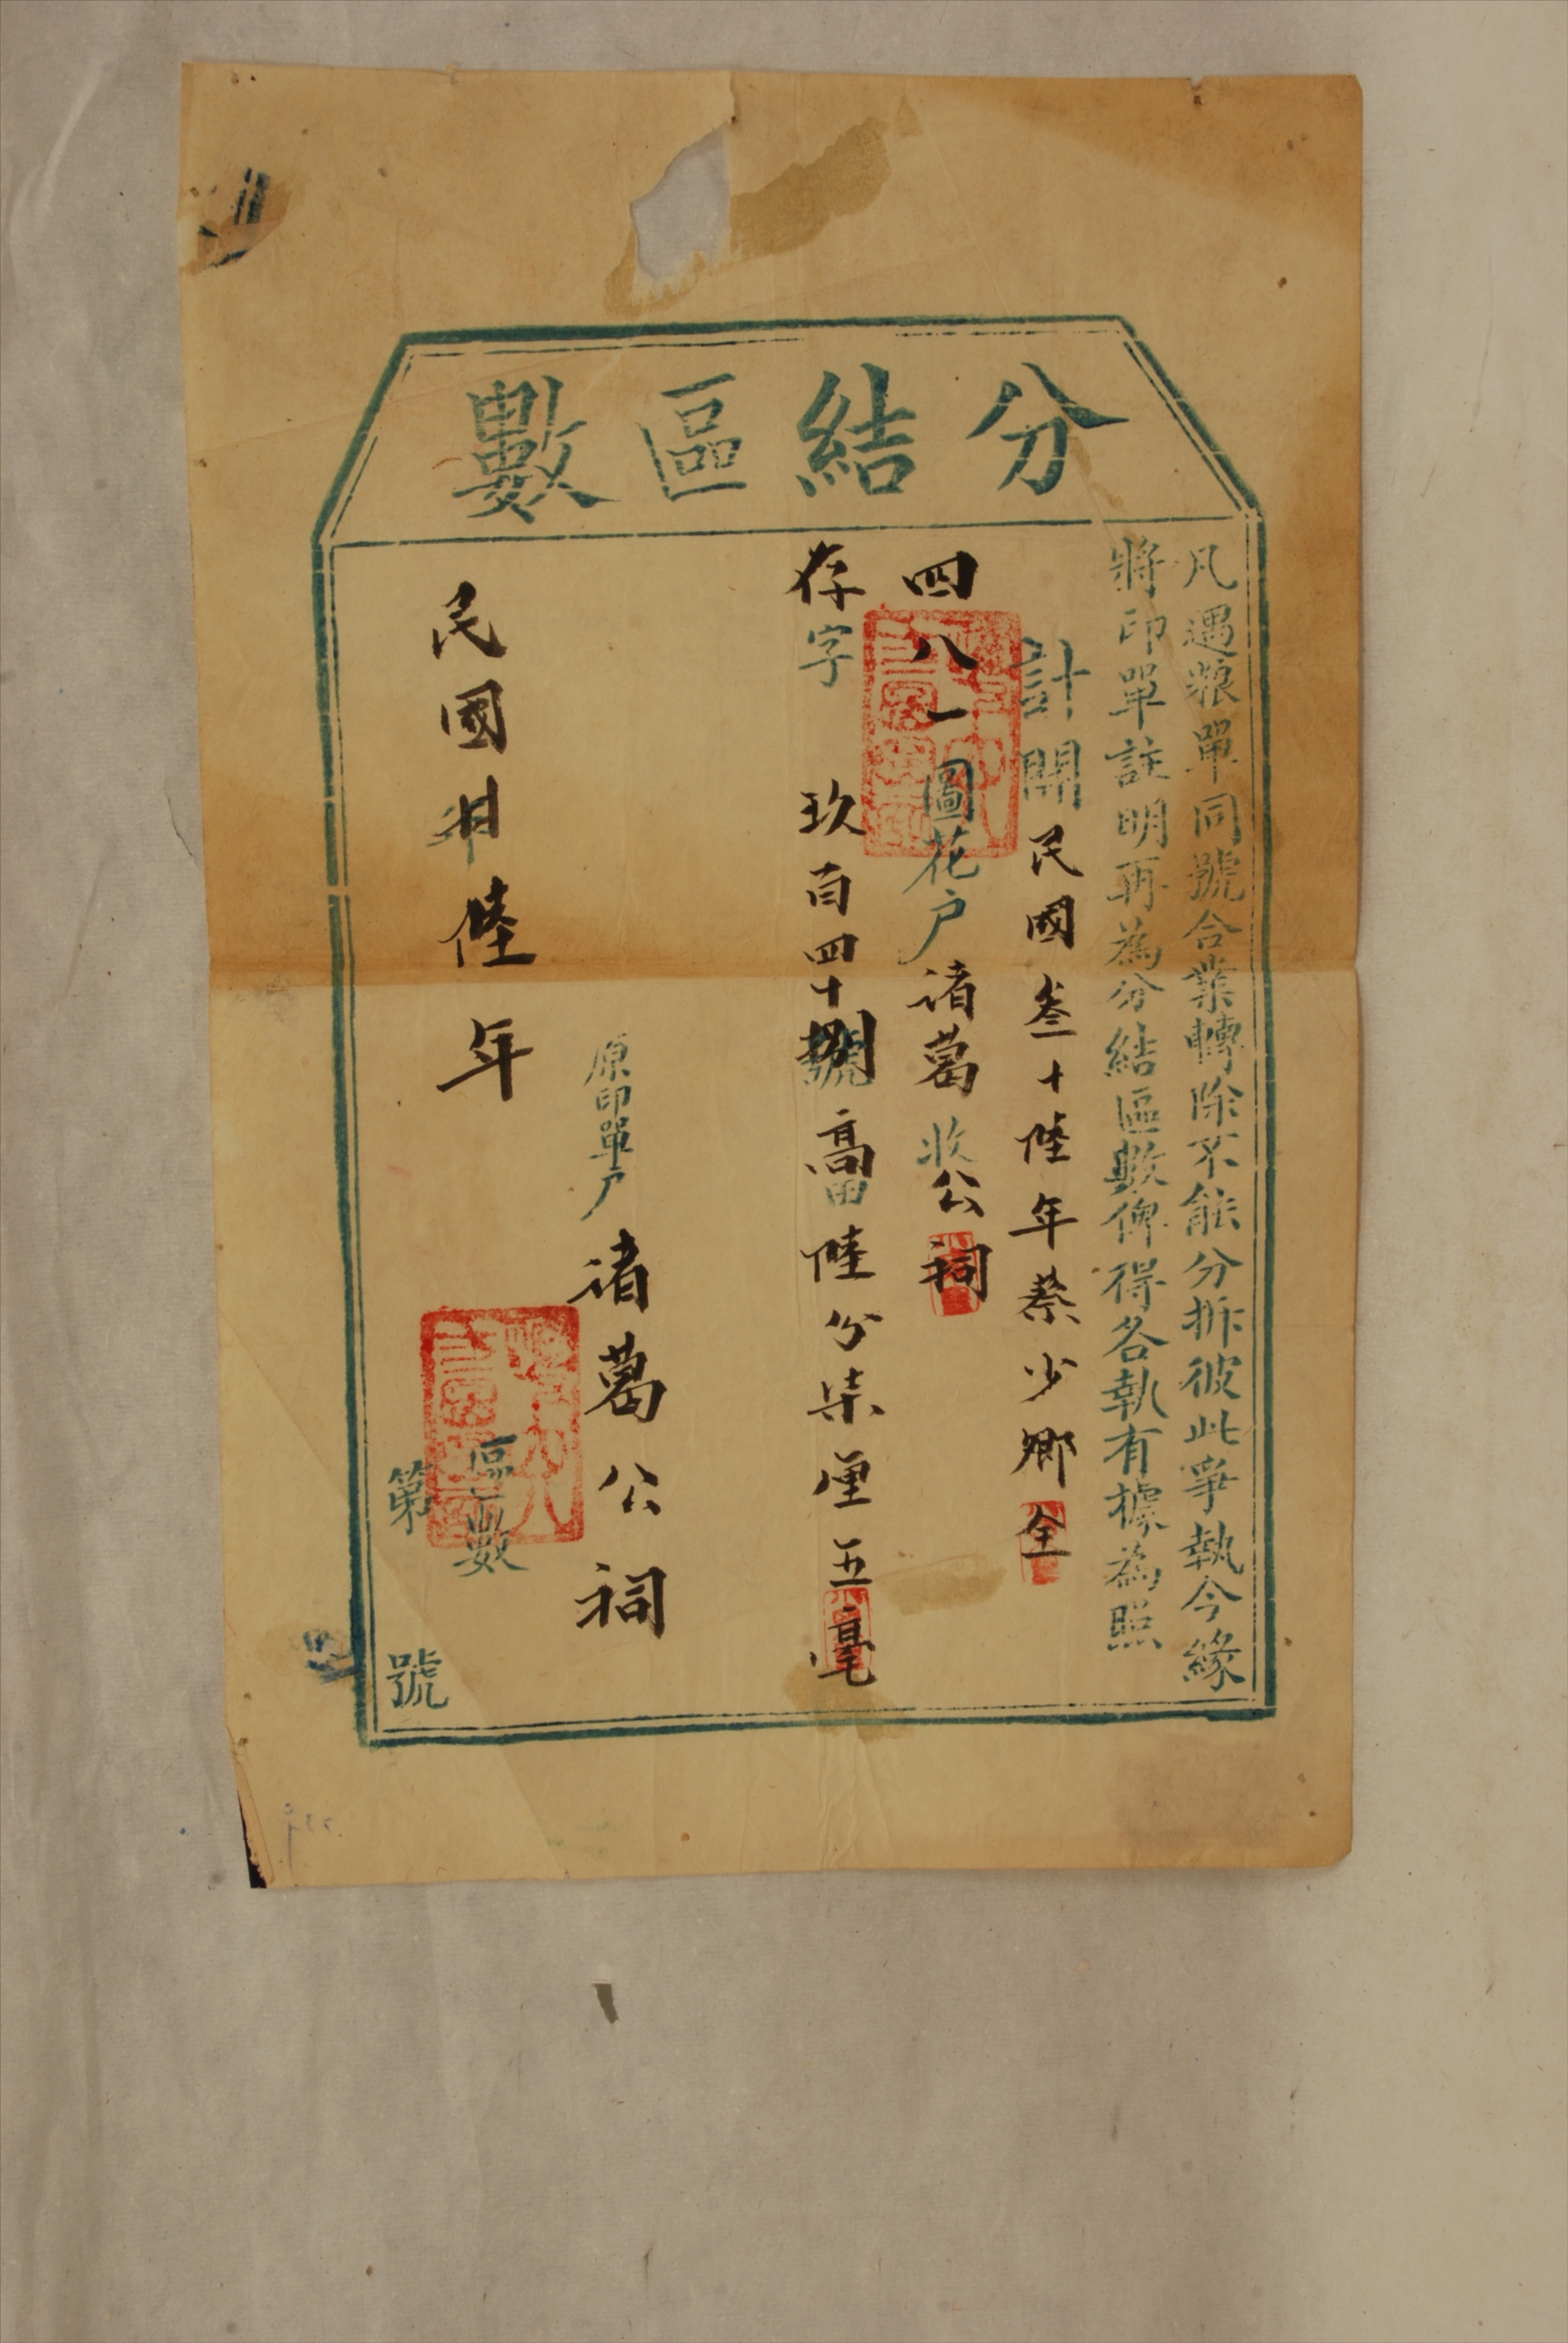 分結區數
凡遇粮單同號合業轉除不能分拆彼此爭執今緣
將印單註明再為分結區數俾得各執有據為照
計開民國叁十陸年蔡少鄉全
四八一圖花户諸葛收公祠
存字玖百四十捌號高田陸分柒厘五毫
原印單户諸葛公祠
民國卅陸年
區數
第號